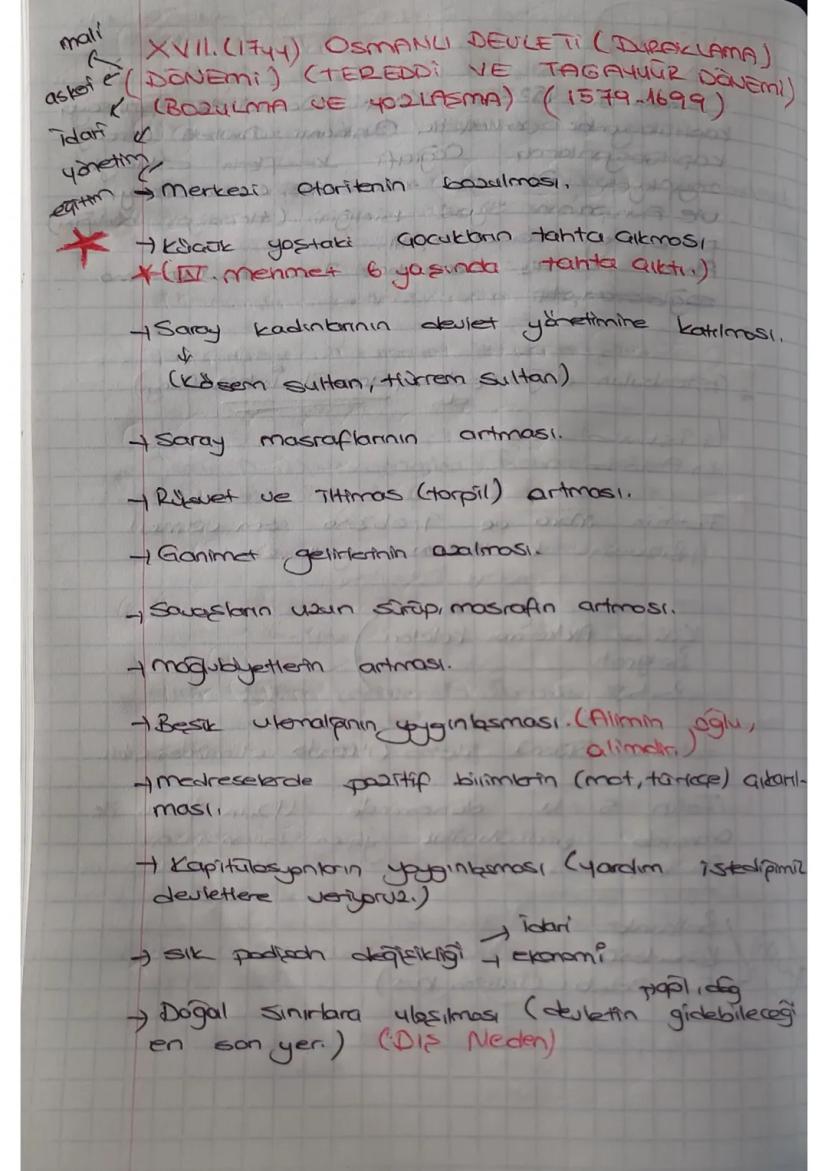 mali
askeri
idari
yönetim
eğitim
XVII. (1744) OSMANLI DEVLETİ (DURAKLAMA)
(DÖNEMİ) (TEREDDİ VE TAGAYYÜR DÖNEMİ)
(BOZULMA VE YOZLAŞMA) (1579-1699)
→ Merkezi otoritenin bozulması.
→ Küçük yaştaki çocukların tahta çıkması
* (IV. Mehmet 6 yaşında tahta çıktı.)
→ Saray kadınlarının devlet yönetimine katılması.
(Kösem Sultan, Hürrem Sultan)
→ Saray masraflarının artması.
→ Rüşvet ve İltimas (torpil) artması.
→ Ganimet gelirlerinin azalması.
→ Savaşların uzun sürüp, masrafın artması.
→ Mağlubiyetlerin artması.
→ Beşik ulemalığının yaygınlaşması. (Alimin oğlu,
alimdir.)
→ Medreselerde pozitif bilimlerin (mat, türkçe) çıkarıl-
ması.
→ Kapitülasyonların yaygınlaşması (yardım istediğimiz
devletlere veriyoruz.)
→ sık padişah değişikliği → idari
→ ekonomi
→ Doğal sınırlara ulaşılması (devletin gidebileceği
en son yer.) (DIŞ Neden)